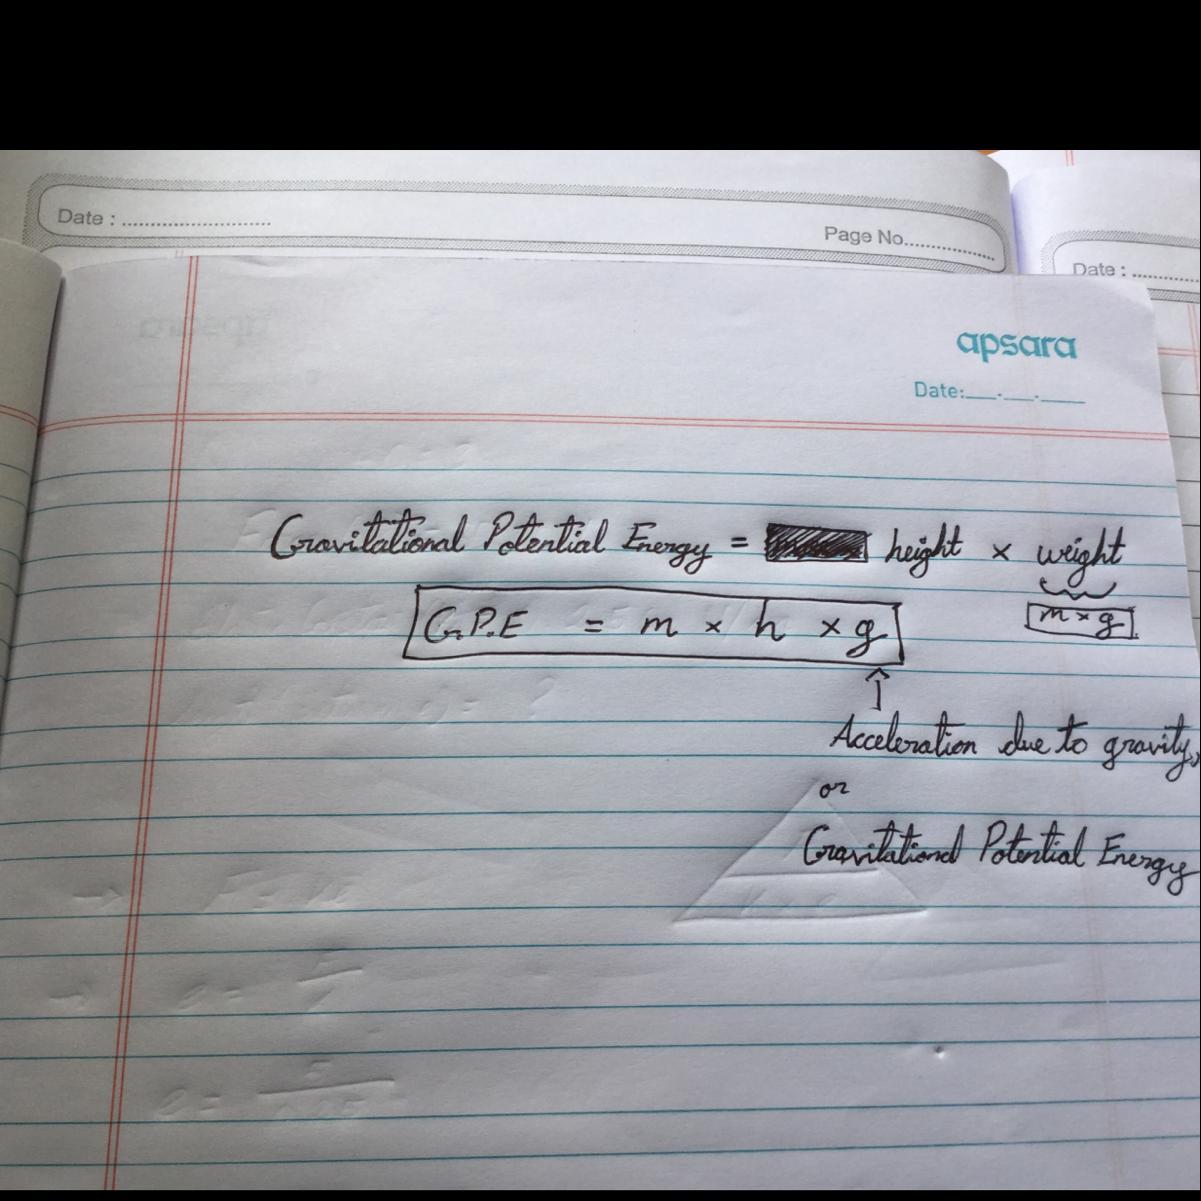 Date : ........................
Page No...............
Date : ............
apsara
Date:__.__.___
Gravitational Potential Energy = height × weight
m × g
G.P.E = m × h × g
Acceleration due to gravity,
or
Gravitational Potential Energy